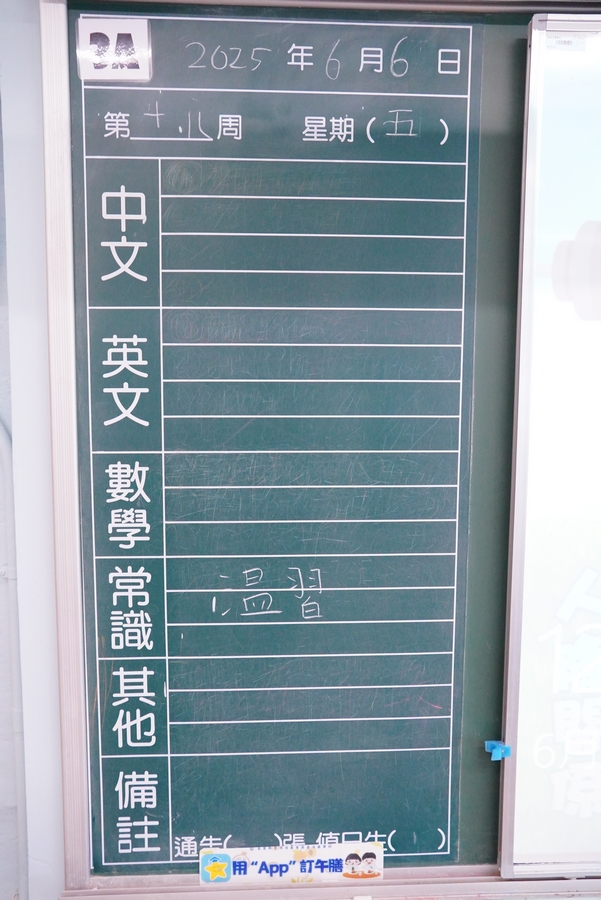 3A
2025 年 6 月 6 日
第 十八 周 星期 ( 五 )
中文
英文
數學
常識
溫習
其他
備註
通告( )張 值日生( )
用 “App” 訂午膳